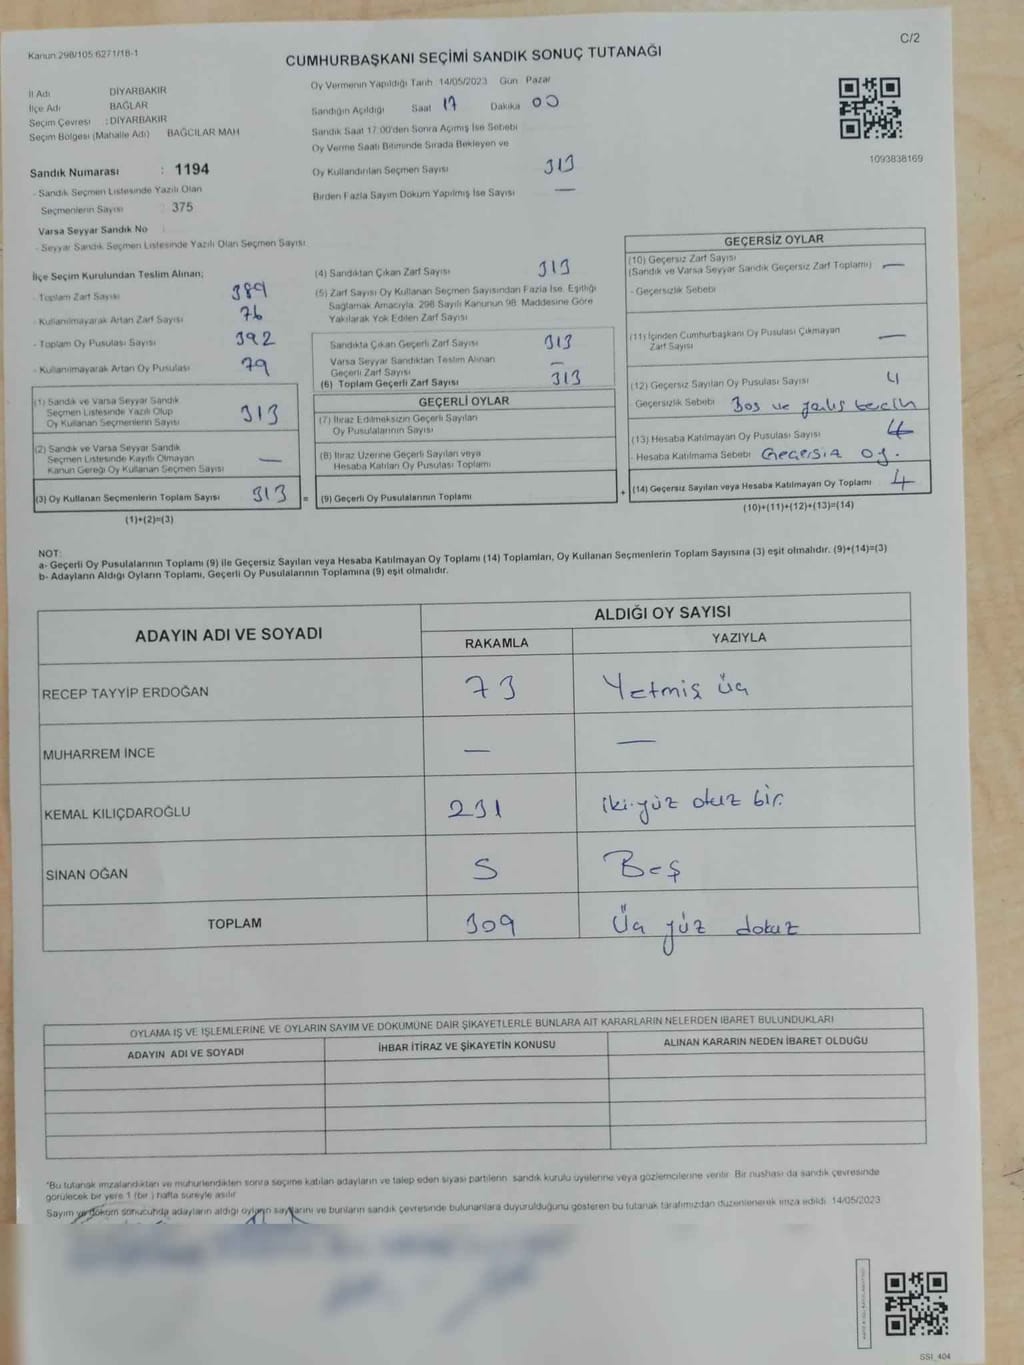 Kanun 298/105 6271/18-1
C/2
CUMHURBAŞKANI SEÇİMİ SANDIK SONUÇ TUTANAĞI
İl Adı DİYARBAKIR
İlçe Adı BAĞLAR
Seçim Çevresi : DİYARBAKIR
Seçim Bölgesi (Mahalle Adı) BAĞCILAR MAH
Sandık Numarası : 1194
- Sandık Seçmen Listesinde Yazılı Olan
Seçmenlerin Sayısı 375
Varsa Seyyar Sandık No
- Seyyar Sandık Seçmen Listesinde Yazılı Olan Seçmen Sayısı
Oy Vermenin Yapıldığı Tarih 14/05/2023 Gün Pazar
Sandığın Açıldığı Saat 17 Dakika 00
Sandık Saat 17:00'den Sonra Açımış İse Sebebi
Oy Verme Saati Bitiminde Sırada Bekleyen ve
Oy Kullandırılan Seçmen Sayısı 313
Birden Fazla Sayım Döküm Yapılmış İse Sayısı —
1093838169
İlçe Seçim Kurulundan Teslim Alınan;
- Toplam Zarf Sayısı 389
- Kullanılmayarak Artan Zarf Sayısı 76
- Toplam Oy Pusulası Sayısı 392
- Kullanılmayarak Artan Oy Pusulası 79
(1) Sandık ve Varsa Seyyar Sandık
Seçmen Listesinde Yazılı Olup
Oy Kullanan Seçmenlerin Sayısı 313
(2) Sandık ve Varsa Seyyar Sandık
Seçmen Listesinde Kayıtlı Olmayan
Kanun Gereği Oy Kullanan Seçmen Sayısı —
(3) Oy Kullanan Seçmenlerin Toplam Sayısı 313
(1)+(2)=(3)
(4) Sandıktan Çıkan Zarf Sayısı 313
(5) Zarf Sayısı Oy Kullanan Seçmen Sayısından Fazla İse, Eşitliği
Sağlamak Amacıyla, 298 Sayılı Kanunun 98. Maddesine Göre
Yakılarak Yok Edilen Zarf Sayısı
Sandıkta Çıkan Geçerli Zarf Sayısı 313
Varsa Seyyar Sandıktan Teslim Alınan
Geçerli Zarf Sayısı —
(6) Toplam Geçerli Zarf Sayısı 313
GEÇERLİ OYLAR
(7) İtiraz Edilmeksizin Geçerli Sayılan
Oy Pusulalarının Sayısı
(8) İtiraz Üzerine Geçerli Sayılan veya
Hesaba Katılan Oy Pusulası Toplamı
= (9) Geçerli Oy Pusulalarının Toplamı +
GEÇERSİZ OYLAR
(10) Geçersiz Zarf Sayısı
(Sandık ve Varsa Seyyar Sandık Geçersiz Zarf Toplamı) —
- Geçersizlik Sebebi
(11) İçinden Cumhurbaşkanı Oy Pusulası Çıkmayan
Zarf Sayısı —
(12) Geçersiz Sayılan Oy Pusulası Sayısı 4
Geçersizlik Sebebi Boş ve yalış tercih
(13) Hesaba Katılmayan Oy Pusulası Sayısı 4
- Hesaba Katılmama Sebebi Geçersiz oy.
(14) Geçersiz Sayılan veya Hesaba Katılmayan Oy Toplamı 4
(10)+(11)+(12)+(13)=(14)
NOT:
a- Geçerli Oy Pusulalarının Toplamı (9) ile Geçersiz Sayılan veya Hesaba Katılmayan Oy Toplamı (14) Toplamları, Oy Kullanan Seçmenlerin Toplam Sayısına (3) eşit olmalıdır. (9)+(14)=(3)
b- Adayların Aldığı Oyların Toplamı, Geçerli Oy Pusulalarının Toplamına (9) eşit olmalıdır.
ADAYIN ADI VE SOYADI
ALDIĞI OY SAYISI
RAKAMLA YAZIYLA
RECEP TAYYİP ERDOĞAN 73 Yetmiş üç
MUHARREM İNCE — —
KEMAL KILIÇDAROĞLU 231 iki yüz otuz bir.
SİNAN OĞAN 5 Beş
TOPLAM 309 Üç yüz dokuz
OYLAMA İŞ VE İŞLEMLERİNE VE OYLARIN SAYIM VE DÖKÜMÜNE DAİR ŞİKAYETLERLE BUNLARA AİT KARARLARIN NELERDEN İBARET BULUNDUKLARI
ADAYIN ADI VE SOYADI İHBAR İTİRAZ VE ŞİKAYETİN KONUSU ALINAN KARARIN NEDEN İBARET OLDUĞU
*Bu tutanak imzalandıktan ve mühürlendikten sonra seçime katılan adayların ve talep eden siyasi partilerin sandık kurulu üyelerine veya gözlemcilerine verilir. Bir nüshası da sandık çevresinde
görülecek bir yere 1 (bir) hafta süreyle asılır
Sayım ve döküm sonucunda adayların aldığı oyların sayılarını ve bunların sandık çevresinde bulunanlara duyurulduğunu gösteren bu tutanak tarafımızdan düzenlenerek imza edildi. 14/05/2023
SSI_404